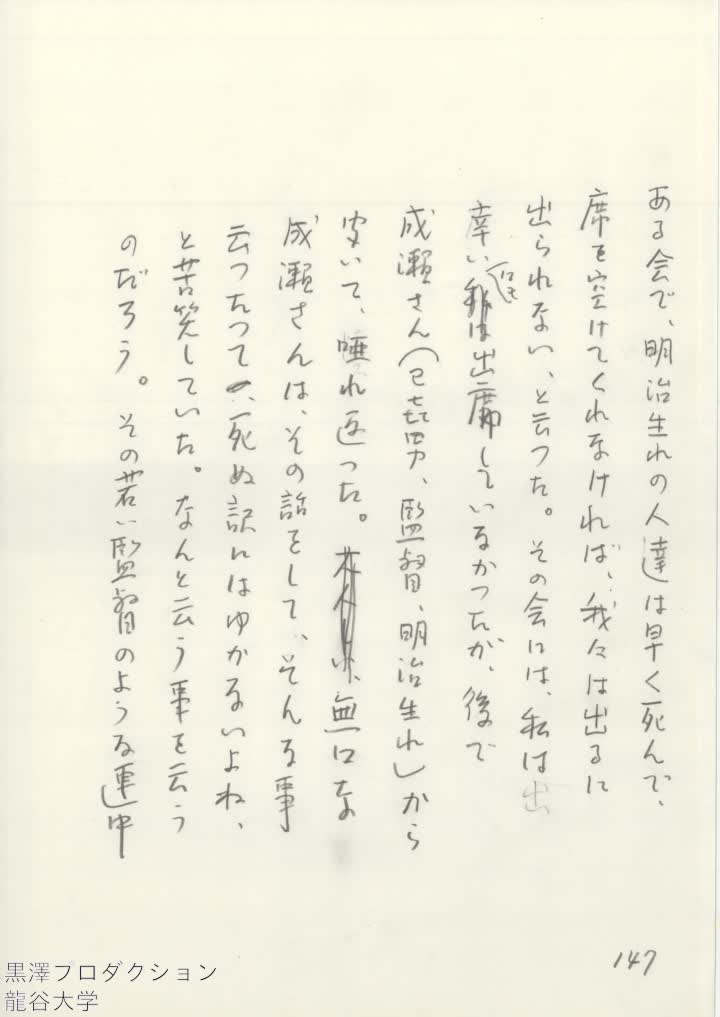 ある会で、明治生れの人達は早く死んで、
席を空けてくれなければ、我々は出るに
出られない、と云つた。その会には、私は出
幸いにも出席していなかつたが、後で
成瀬さん(巳喜男、監督、明治生れ)から
聞いて、唖れ返つた。無にな
成瀬さんは、その話をして、そんな事
云つたつて、死ぬ訳にはゆかないよね、
と苦笑していた。なんと云う事を云う
のだろう。その若い監督のような連中
147
黒澤プロダクション
龍谷大学